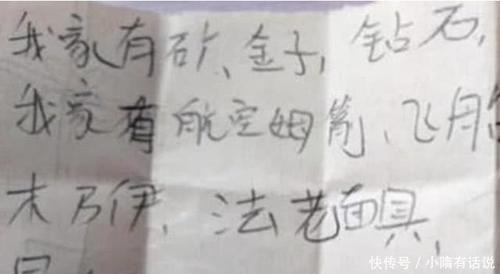 我家有矿、金子,钻石,
我家有航空母舰、飞船
木乃伊,法老面具,
快传号/小隋有话说